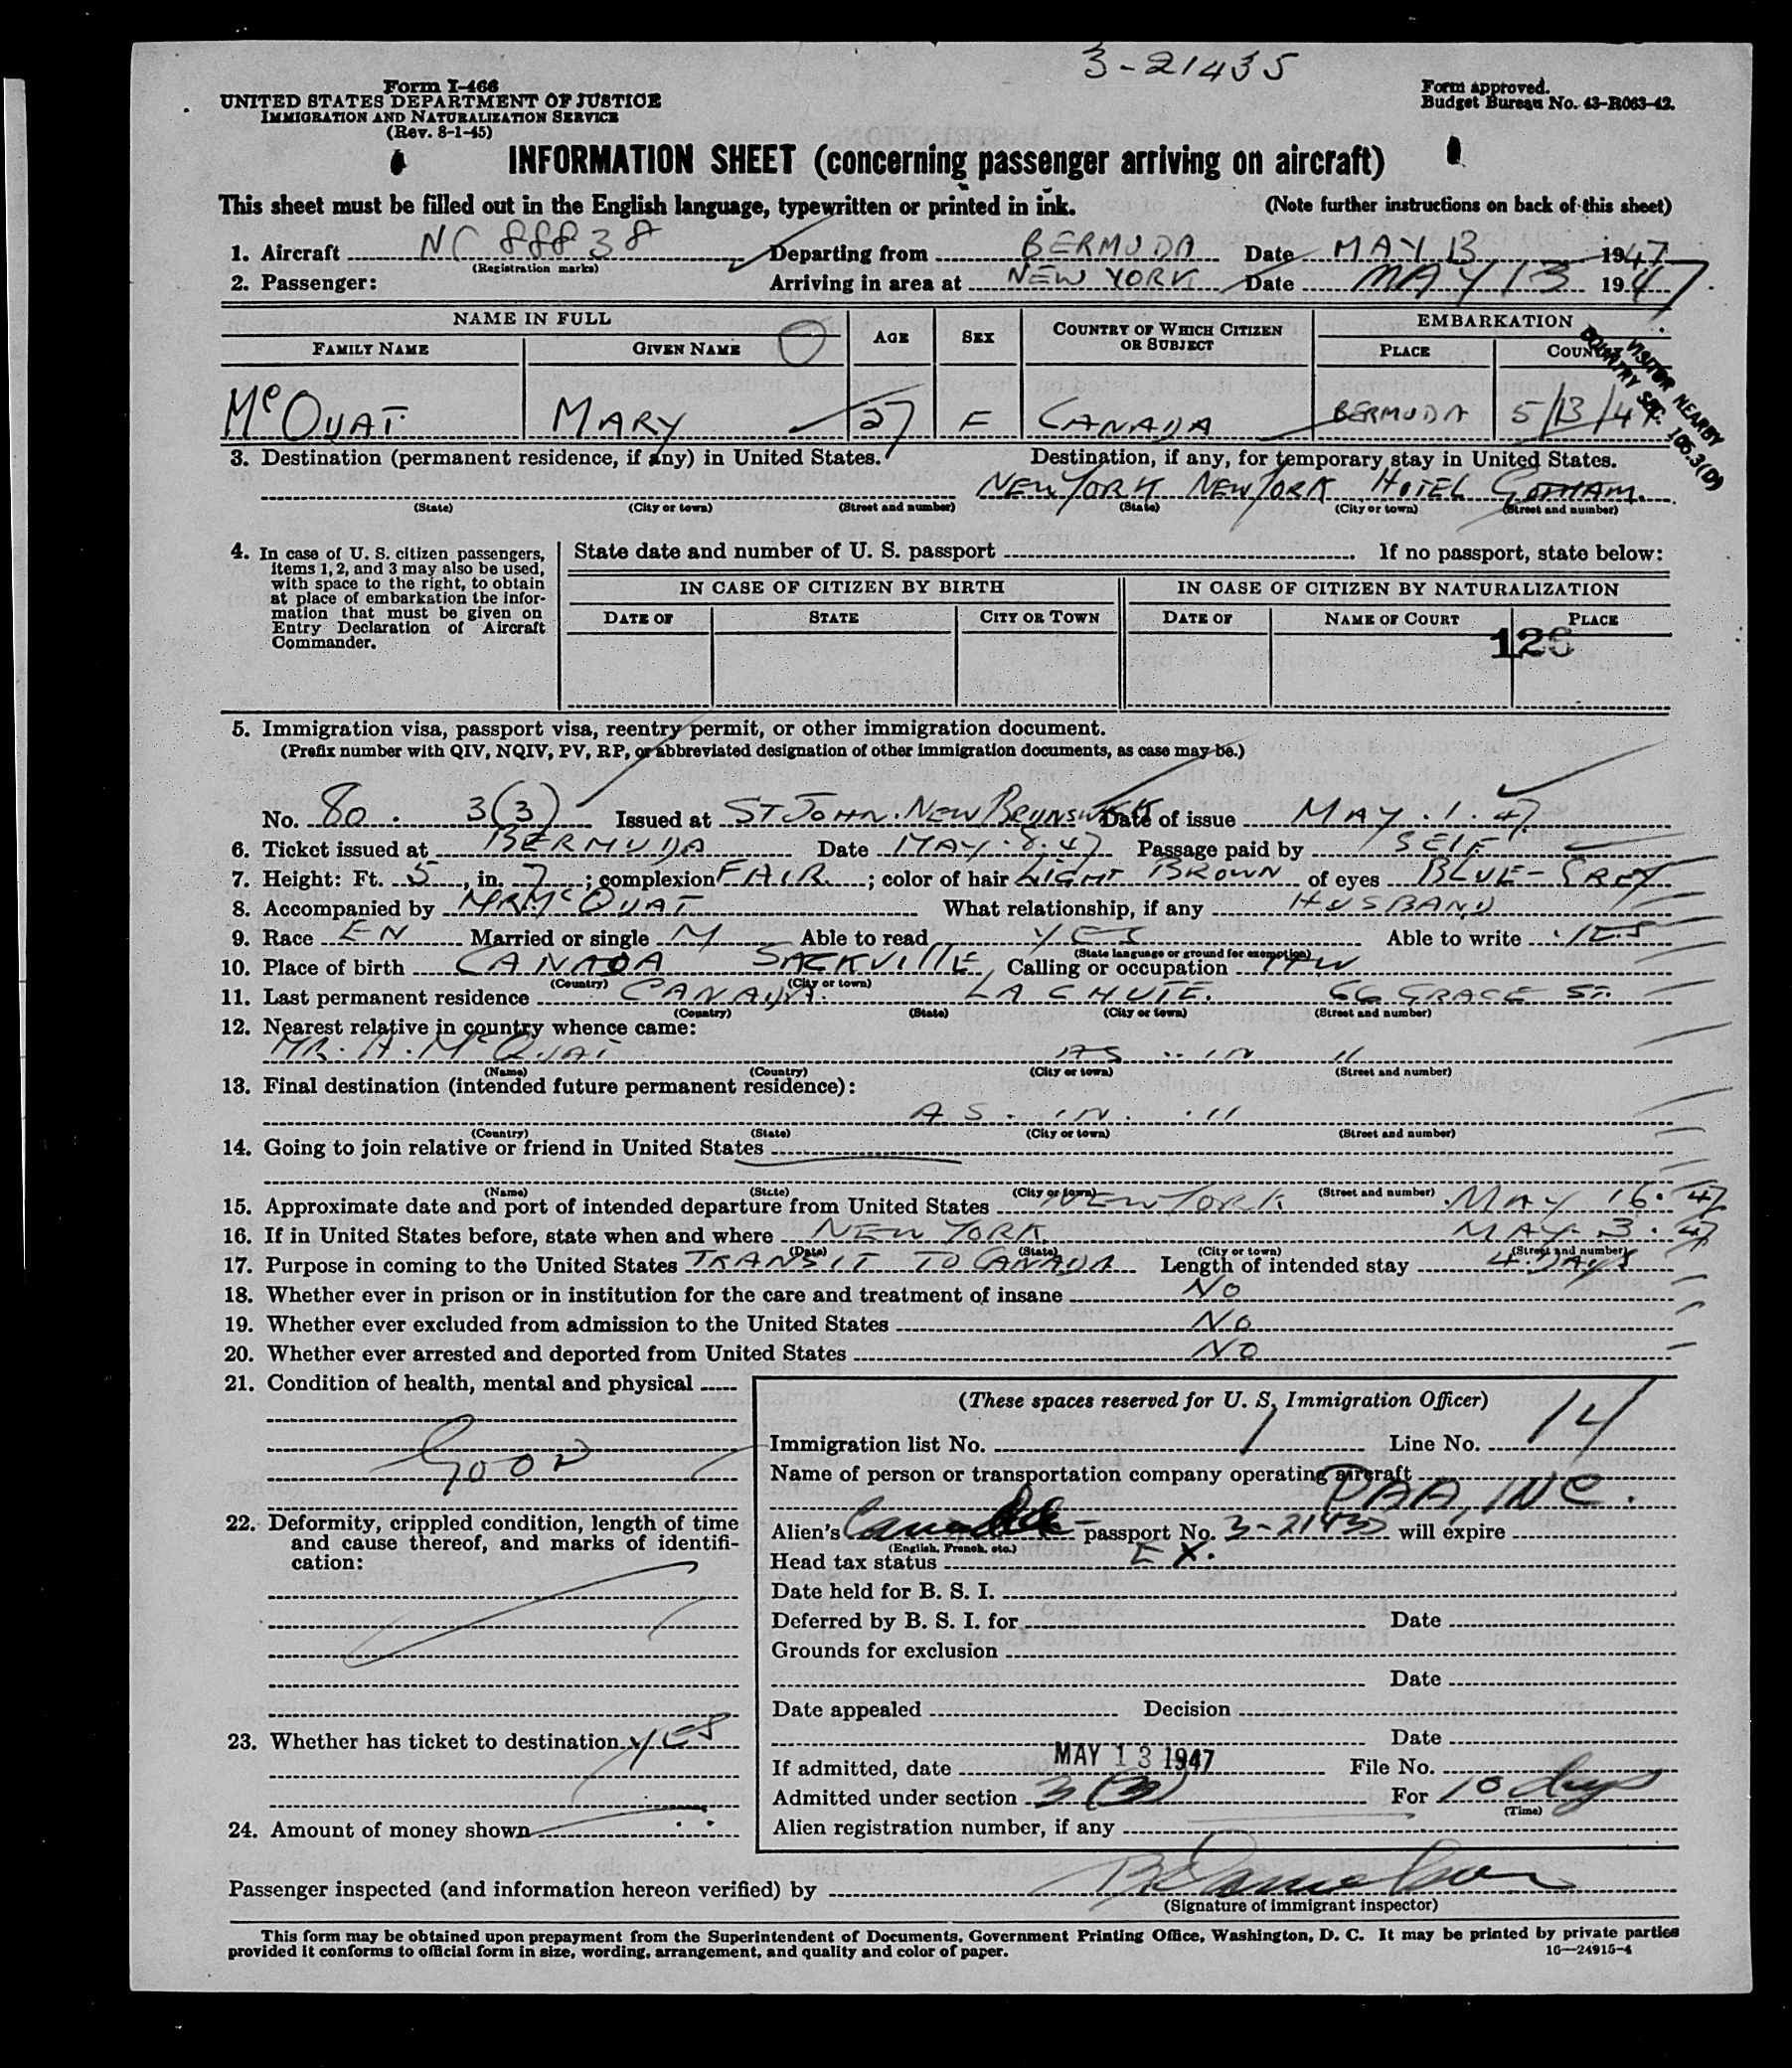 3-21435
Form I-466
UNITED STATES DEPARTMENT OF JUSTICE
IMMIGRATION AND NATURALIZATION SERVICE
(Rev. 8-1-45)
Form approved.
Budget Bureau No. 43-R063-42.
INFORMATION SHEET (concerning passenger arriving on aircraft)
This sheet must be filled out in the English language, typewritten or printed in ink. (Note further instructions on back of this sheet)
1. Aircraft NC 88838 Departing from BERMUDA Date MAY 13 1947
(Registration marks)
2. Passenger: Arriving in area at NEW YORK Date MAY 13 1947
NAME IN FULL AGE SEX COUNTRY OF WHICH CITIZEN OR SUBJECT EMBARKATION
FAMILY NAME GIVEN NAME PLACE COUNTRY
VISITOR NEARBY
COUNTRY SEC. 165.3(D)
McQUAT MARY 27 F CANADA BERMUDA 5/13/47
3. Destination (permanent residence, if any) in United States. Destination, if any, for temporary stay in United States.
NEW YORK NEW YORK HOTEL GOTHAM.
(State) (City or town) (Street and number) (State) (City or town) (Street and number)
4. In case of U. S. citizen passengers, items 1, 2, and 3 may also be used, with space to the right, to obtain at place of embarkation the information that must be given on Entry Declaration of Aircraft Commander.
State date and number of U. S. passport If no passport, state below:
IN CASE OF CITIZEN BY BIRTH IN CASE OF CITIZEN BY NATURALIZATION
DATE OF STATE CITY OR TOWN DATE OF NAME OF COURT PLACE
126
5. Immigration visa, passport visa, reentry permit, or other immigration document.
(Prefix number with QIV, NQIV, PV, RP, or abbreviated designation of other immigration documents, as case may be.)
No. 80. 3(3) Issued at ST JOHN. NEW BRUNSWICK Date of issue MAY. 1. 47.
6. Ticket issued at BERMUDA Date MAY. 8. 47 Passage paid by SELF
7. Height: Ft. 5, in. 7; complexion FAIR; color of hair LIGHT BROWN of eyes BLUE-GREY
8. Accompanied by MR McQUAT What relationship, if any HUSBAND
9. Race EN Married or single M Able to read YES Able to write YES
(State language or ground for exemption)
10. Place of birth CANADA SACKVILLE Calling or occupation
(Country) (City or town)
11. Last permanent residence CANADA. LACHUTE. 66 GRACE ST.
(Country) (State) (City or town) (Street and number)
12. Nearest relative in country whence came:
MR. A. McQUAT AS IN 11
(Name) (Country) (City or town) (Street and number)
13. Final destination (intended future permanent residence):
AS. IN. 11
(Country) (State) (City or town) (Street and number)
14. Going to join relative or friend in United States
(Name) (State) (City or town) (Street and number)
15. Approximate date and port of intended departure from United States NEW YORK MAY 16. 47
16. If in United States before, state when and where NEW YORK MAY. 3. 47
(Date) (State) (City or town) (Street and number)
17. Purpose in coming to the United States TRANSIT TO CANADA Length of intended stay 4 DAYS
18. Whether ever in prison or in institution for the care and treatment of insane NO
19. Whether ever excluded from admission to the United States NO
20. Whether ever arrested and deported from United States NO
21. Condition of health, mental and physical
GOOD
22. Deformity, crippled condition, length of time and cause thereof, and marks of identification:
23. Whether has ticket to destination YES
24. Amount of money shown
(These spaces reserved for U. S. Immigration Officer)
Immigration list No. 1 Line No. 14
Name of person or transportation company operating aircraft
PAA, INC.
Alien's passport No. 3-21435 will expire
(English, French, etc.)
Head tax status EX.
Date held for B. S. I.
Deferred by B. S. I. for Date
Grounds for exclusion
Date
Date appealed Decision
Date
If admitted, date MAY 13 1947 File No.
Admitted under section 3(3) For 10 days
(Time)
Alien registration number, if any
Passenger inspected (and information hereon verified) by
(Signature of immigrant inspector)
This form may be obtained upon prepayment from the Superintendent of Documents, Government Printing Office, Washington, D. C. It may be printed by private parties
provided it conforms to official form in size, wording, arrangement, and quality and color of paper.
16—24915-4